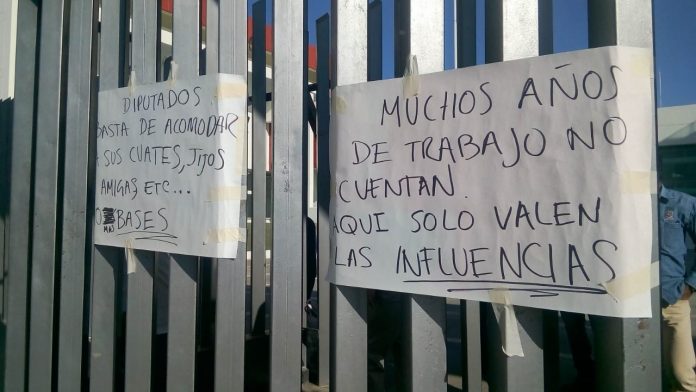 DIPUTADOS
BASTA DE ACOMODAR
A SUS CUATES, JIJOS
AMIGAS, ETC...
BASES
MUCHOS AÑOS
DE TRABAJO NO
CUENTAN.
AQUI SOLO VALEN
LAS INFLUENCIAS